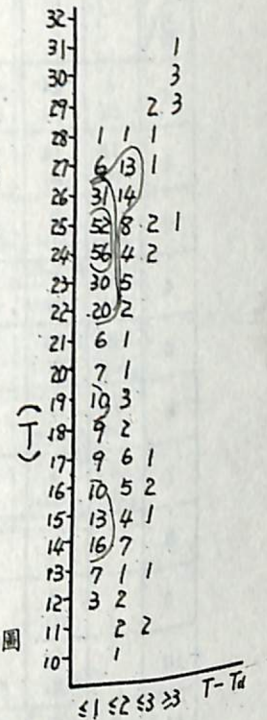 32
31 1
30 3
29 2 3
28 1 1 1
27 6 13 1
26 31 14
25 52 8 2 1
24 56 4 2
23 30 5
22 20 2
21 6 1
20 7 1
19 10 3
18 9 2
17 9 6 1
16 10 5 2
15 13 4 1
14 16 7
13 7 1 1
12 3 2
11 2 2
10 1
(T)
≤1 ≤2 ≤3 ≥3 T-Td
圖